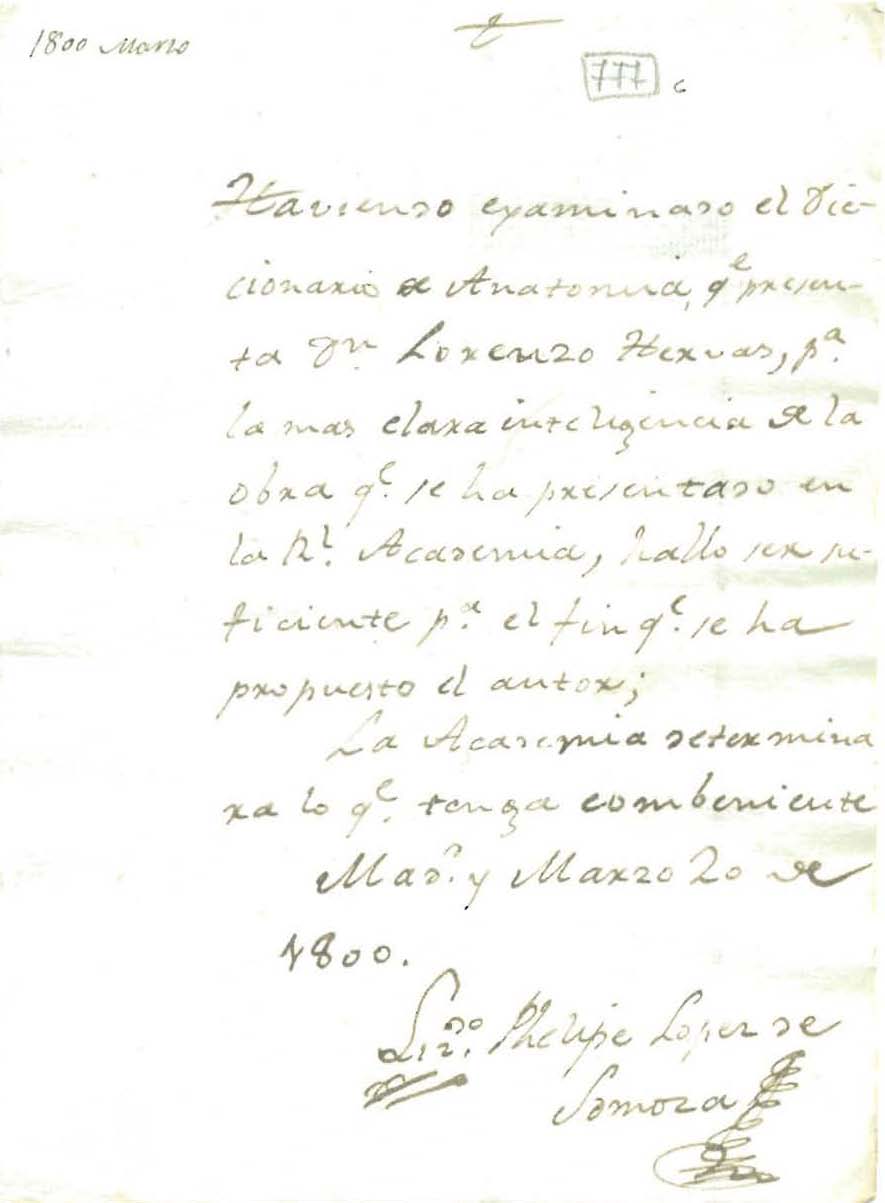 1800 Marzo
777 c
Haviendo examinado el Dic-
cionario de Anatomia, qe presen-
ta Dn. Lorenzo Hervas, pa.
la mas clara inteligencia de la
obra qe. se ha presentado en
la Rl. Academia, hallo ser su-
ficiente pa. el fin qe. se ha
propuesto el autor;
La Academia determina
ra lo qe. tenga combeniente
Madd. y Marzo 20 de
1800.
Lizdo. Phelipe Lopez de
Somoza